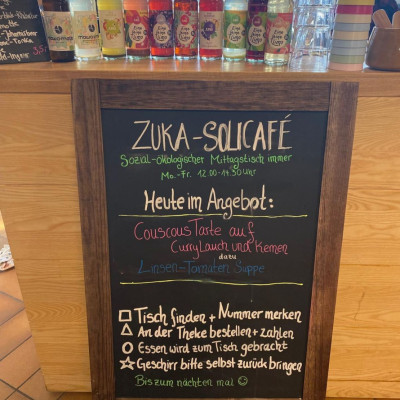 ZUKA-SOLICAFÉ
Sozial-ökologischer Mittagstisch immer
Mo.-Fr. 12.00-14.30 Uhr
Heute im Angebot:
Couscous Tarte auf
Curry Lauch und Kernen
dazu
Linsen-Tomaten Suppe
Tisch finden + Nummer merken
An der Theke bestellen + zahlen
Essen wird zum Tisch gebracht
Geschirr bitte selbst zurück bringen
Bis zum nächten mal